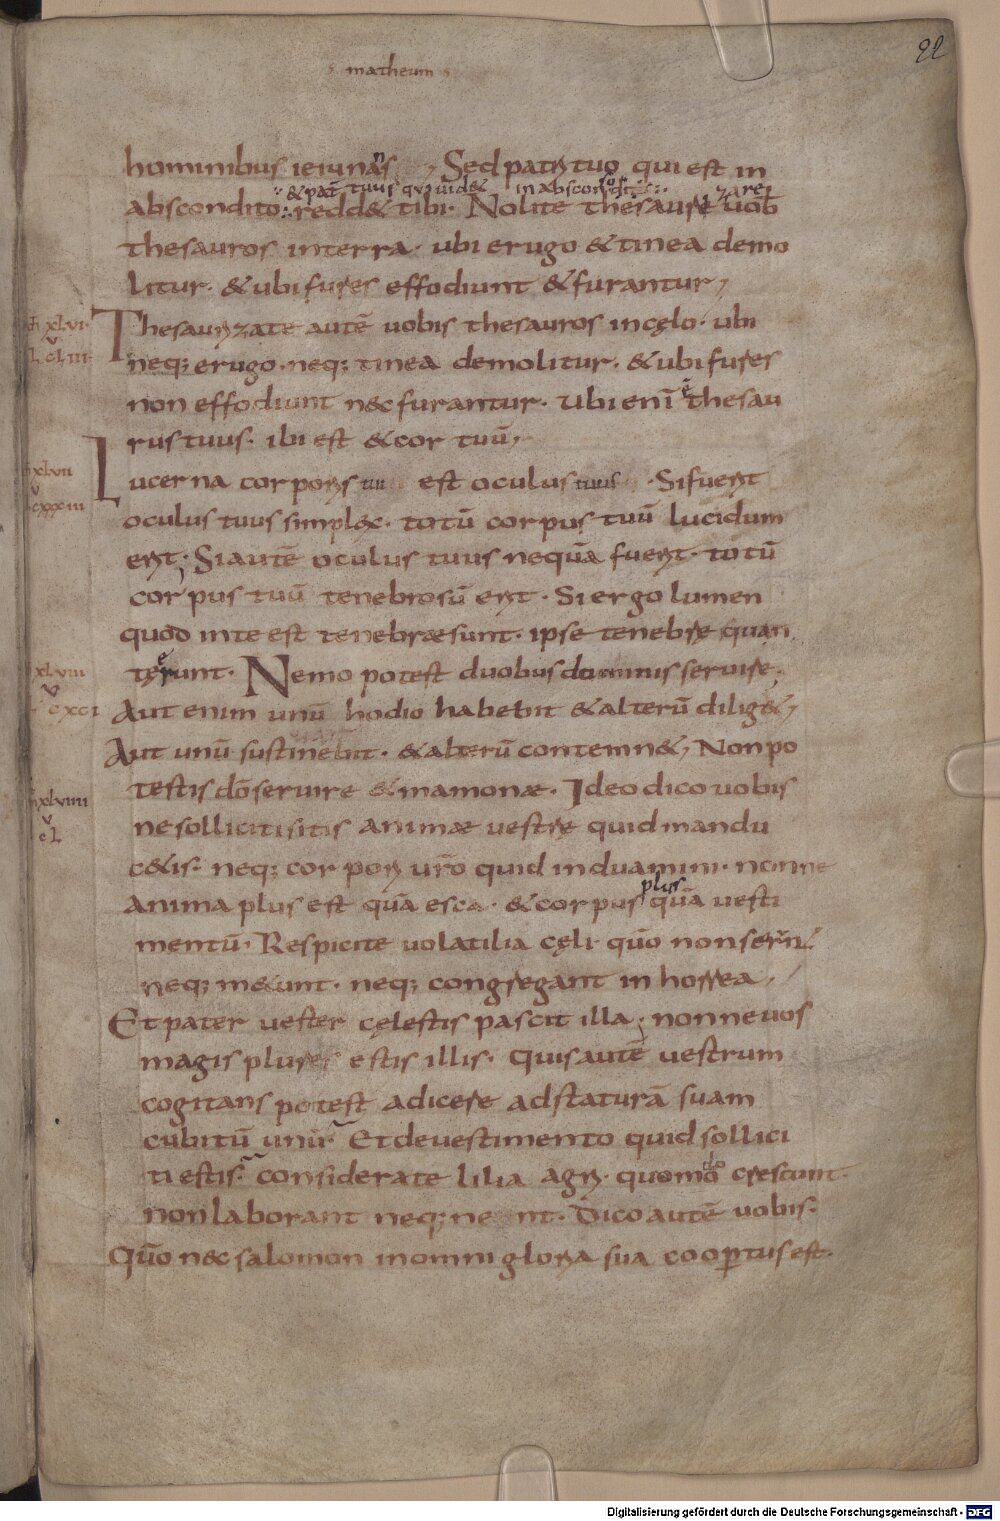 22
matheum
hominibus ieiunans, Sed patri tuo qui est in
& pat̄ tuus qui uid& in absconso
abscondito redd& tibi. Nolite thesaurizare uob̄
thesauros in terra. ubi erugo & tinea demo
litur. & ubi fures effodiunt & furantur,
xlvi
cliii
Thesaurizate autē uobis thesauros in cęlo. ubi
neq; erugo. neq; tinea demolitur. & ubi fures
non effodiunt nec furantur. Ubi enī ē thesau
rus tuus. ibi est & cor tuū,
xlvii
cxxxiii
Lucerna corporis tui est oculus tuus. Si fuerit
oculus tuus simplex. totū corpus tuū lucidum
erit; Si autē oculus tuus nequā fuerit. totū
corpus tuū tenebrosū erit. Si ergo lumen
quod in te est tenebrae sunt. ipse tenebre quan
xlviii
v
cxci
te erunt. Nemo potest duobus dominis seruire.
Aut enim unū hodio habebit & alterū dilig&,
Aut unū sustinebit. & alterū contemn&, Non po
testis dō seruire & mamonae. Ideo dico uobis
xlviiii
v
cl
ne solliciti sitis animae uestre quid mandu
c&is. neq; corpori ur̄o quid induamini. nonne
anima plus est quā esca. & corpus plus quā uesti
mentū. Respicite uolatilia cęli. quō non serunt
neq; metunt. neq; congregant in horrea,
Et pater uester cęlestis pascit illa. nonne uos
magis plures estis illis. Quis autē uestrum
cogitans potest adicere ad staturā suam
cubitū unū. Et de uestimento quid sollici
ti estis. considerate lilia agri. quomodo crescunt.
non laborant neq; nent. Dico autē uobis.
Quō nec salomon in omni gloria sua coopertus est.
Digitalisierung gefördert durch die Deutsche Forschungsgemeinschaft - DFG